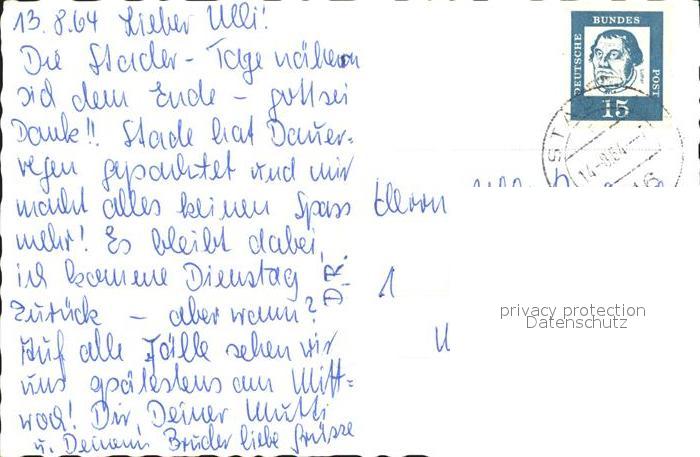 13.8.64 Lieber Ulli!
Die Stader-Tage nähern
sich dem Ende - gottsei
Dank!! Stade hat Dauer-
regen gepachtet und mir
macht alles keinen Spass
mehr! Es bleibt dabei,
ich komme Dienstag
zurück - aber wann?
Auf alle Fälle sehen wir
uns spätestens am Mitt=
woch! Dir, Deiner Mutti
u. Deinem Bruder liebe Grüsse
Herrn
DEUTSCHE BUNDES POST
15
14.-8.64
privacy protection
Datenschutz